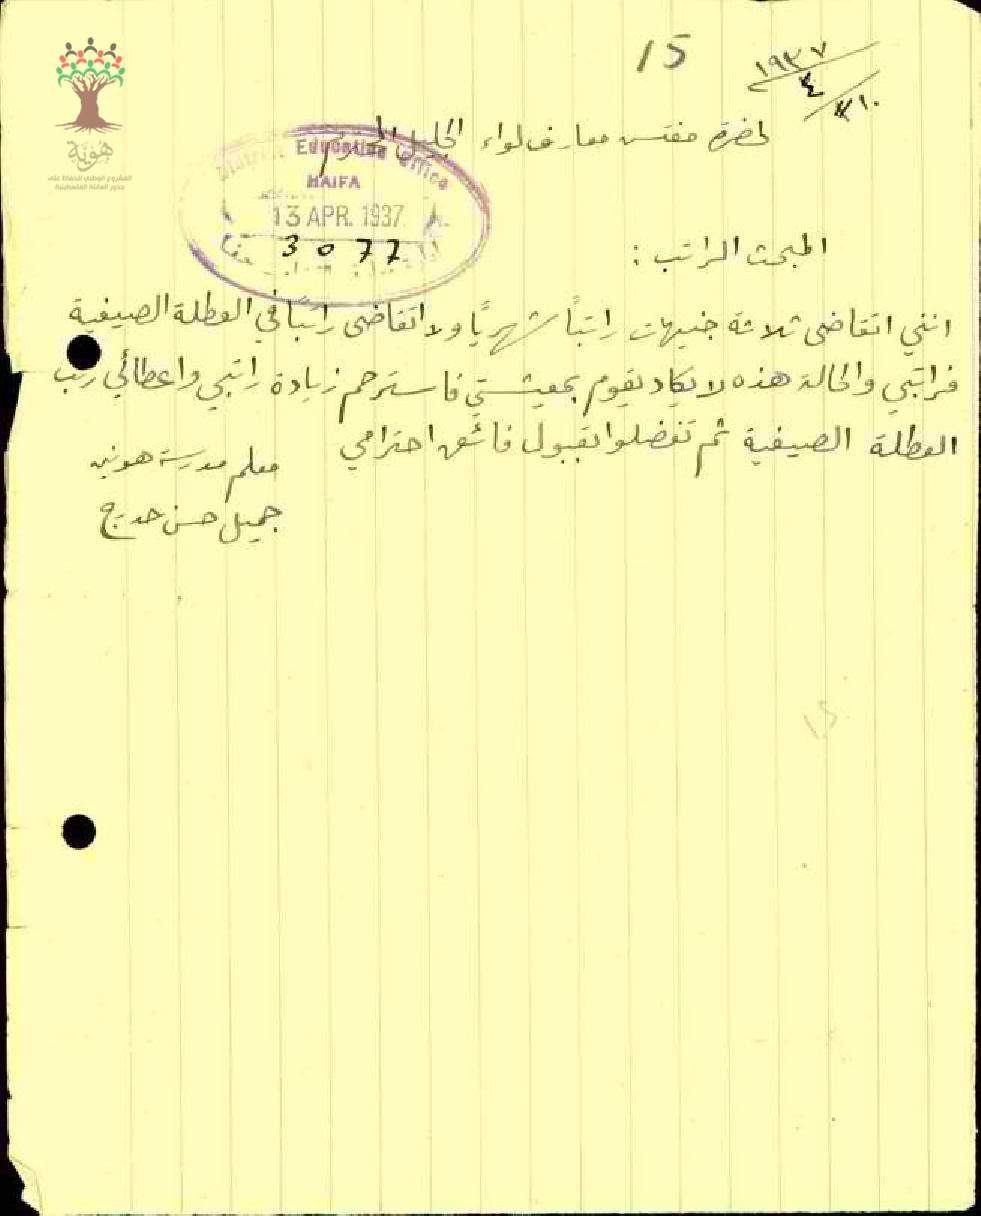 15
١٩٣٧
٤
١٠
لحضرة مفتش معارف لواء الجليل المحترم
District Education Office
HAIFA
13 APR. 1937
3077
المبحث الراتب :
انني اتقاضى ثلاثة جنيهات راتباً شهريًا ولا اتقاضى راتبًا في العطلة الصيفية
فراتبي والحالة هذه لا يكاد يقوم بمعيشتي فاسترحم زيادة راتبي واعطائي راتب
العطلة الصيفية ثم تفضلوا بقبول فائق احترامي
معلم مدرسة هونين
جميل حسن حدرج
15
هوية
المشروع الوطني للحفاظ على
جذور العائلة الفلسطينية